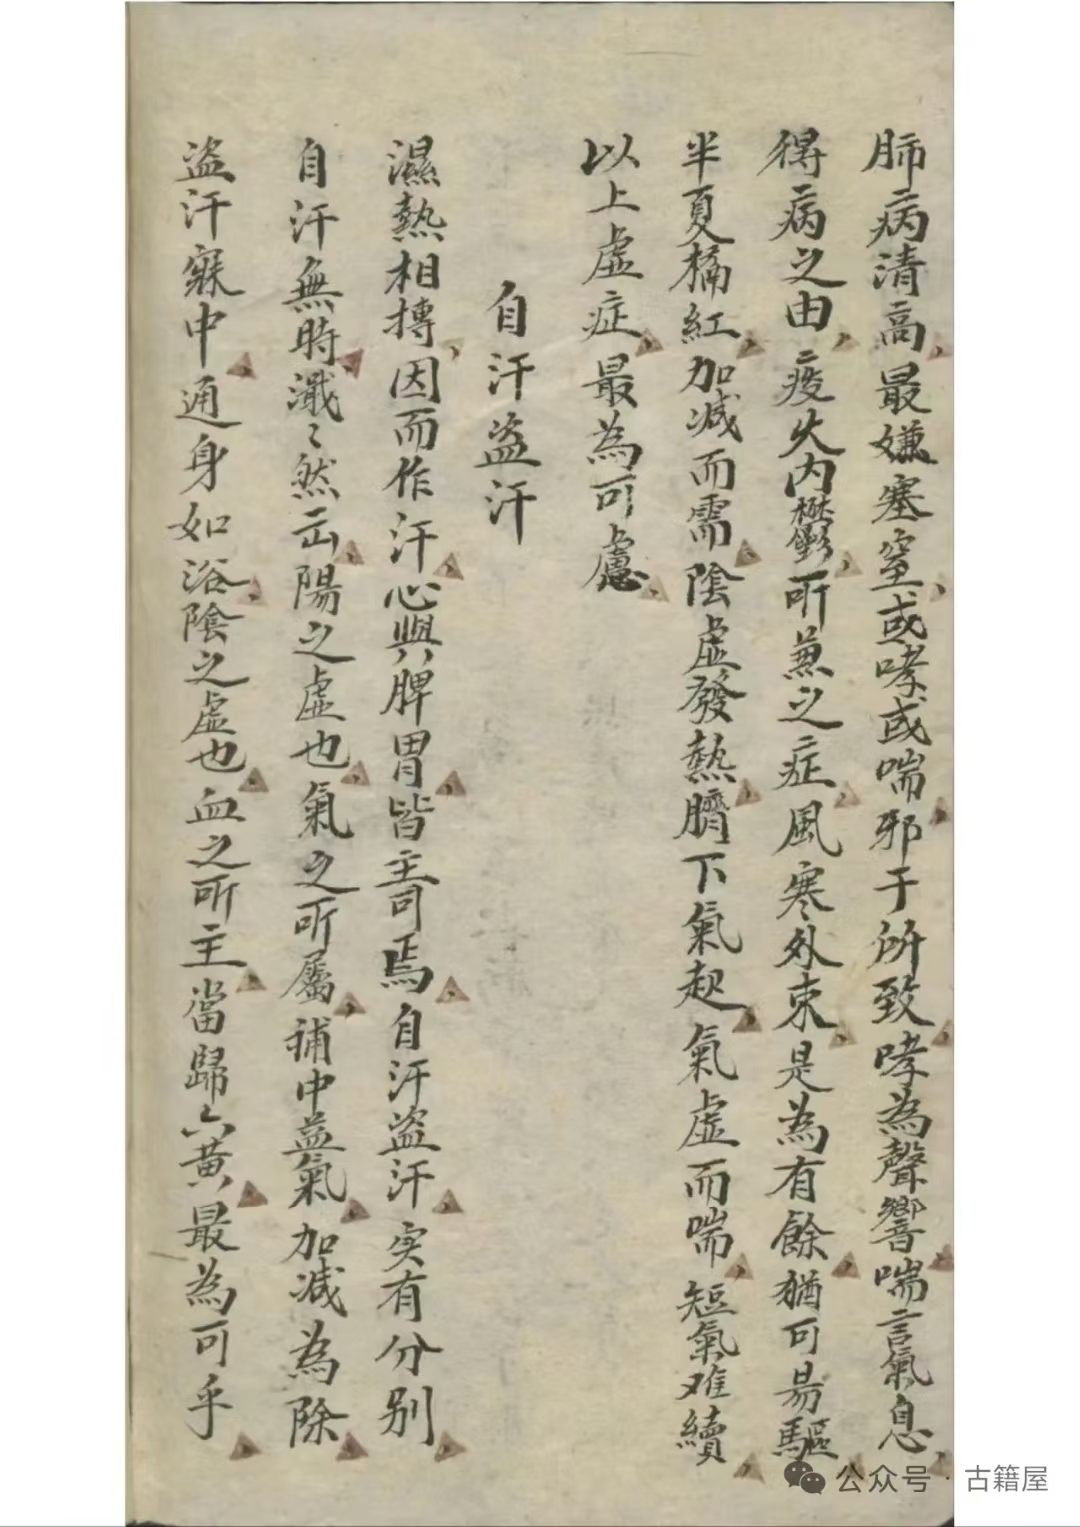 肺病清高最嫌塞窒或哮或喘邪于所致哮為聲響喘言氣息
得病之由痰火内鬱所兼之症風寒外束是為有餘猶可易驅
半夏橘紅加减而需陰虛發熱臍下氣起氣虛而喘短氣难續
以上虛症最為可慮
自汗盗汗
濕熱相摶因而作汗心與脾胃皆主司焉自汗盗汗实有分别
自汗無時濈〻然出陽之虛也氣之所屬補中益氣加减為除
盗汗寐中通身如浴陰之虛也血之所主當歸六黃最為可乎
公众号·古籍屋